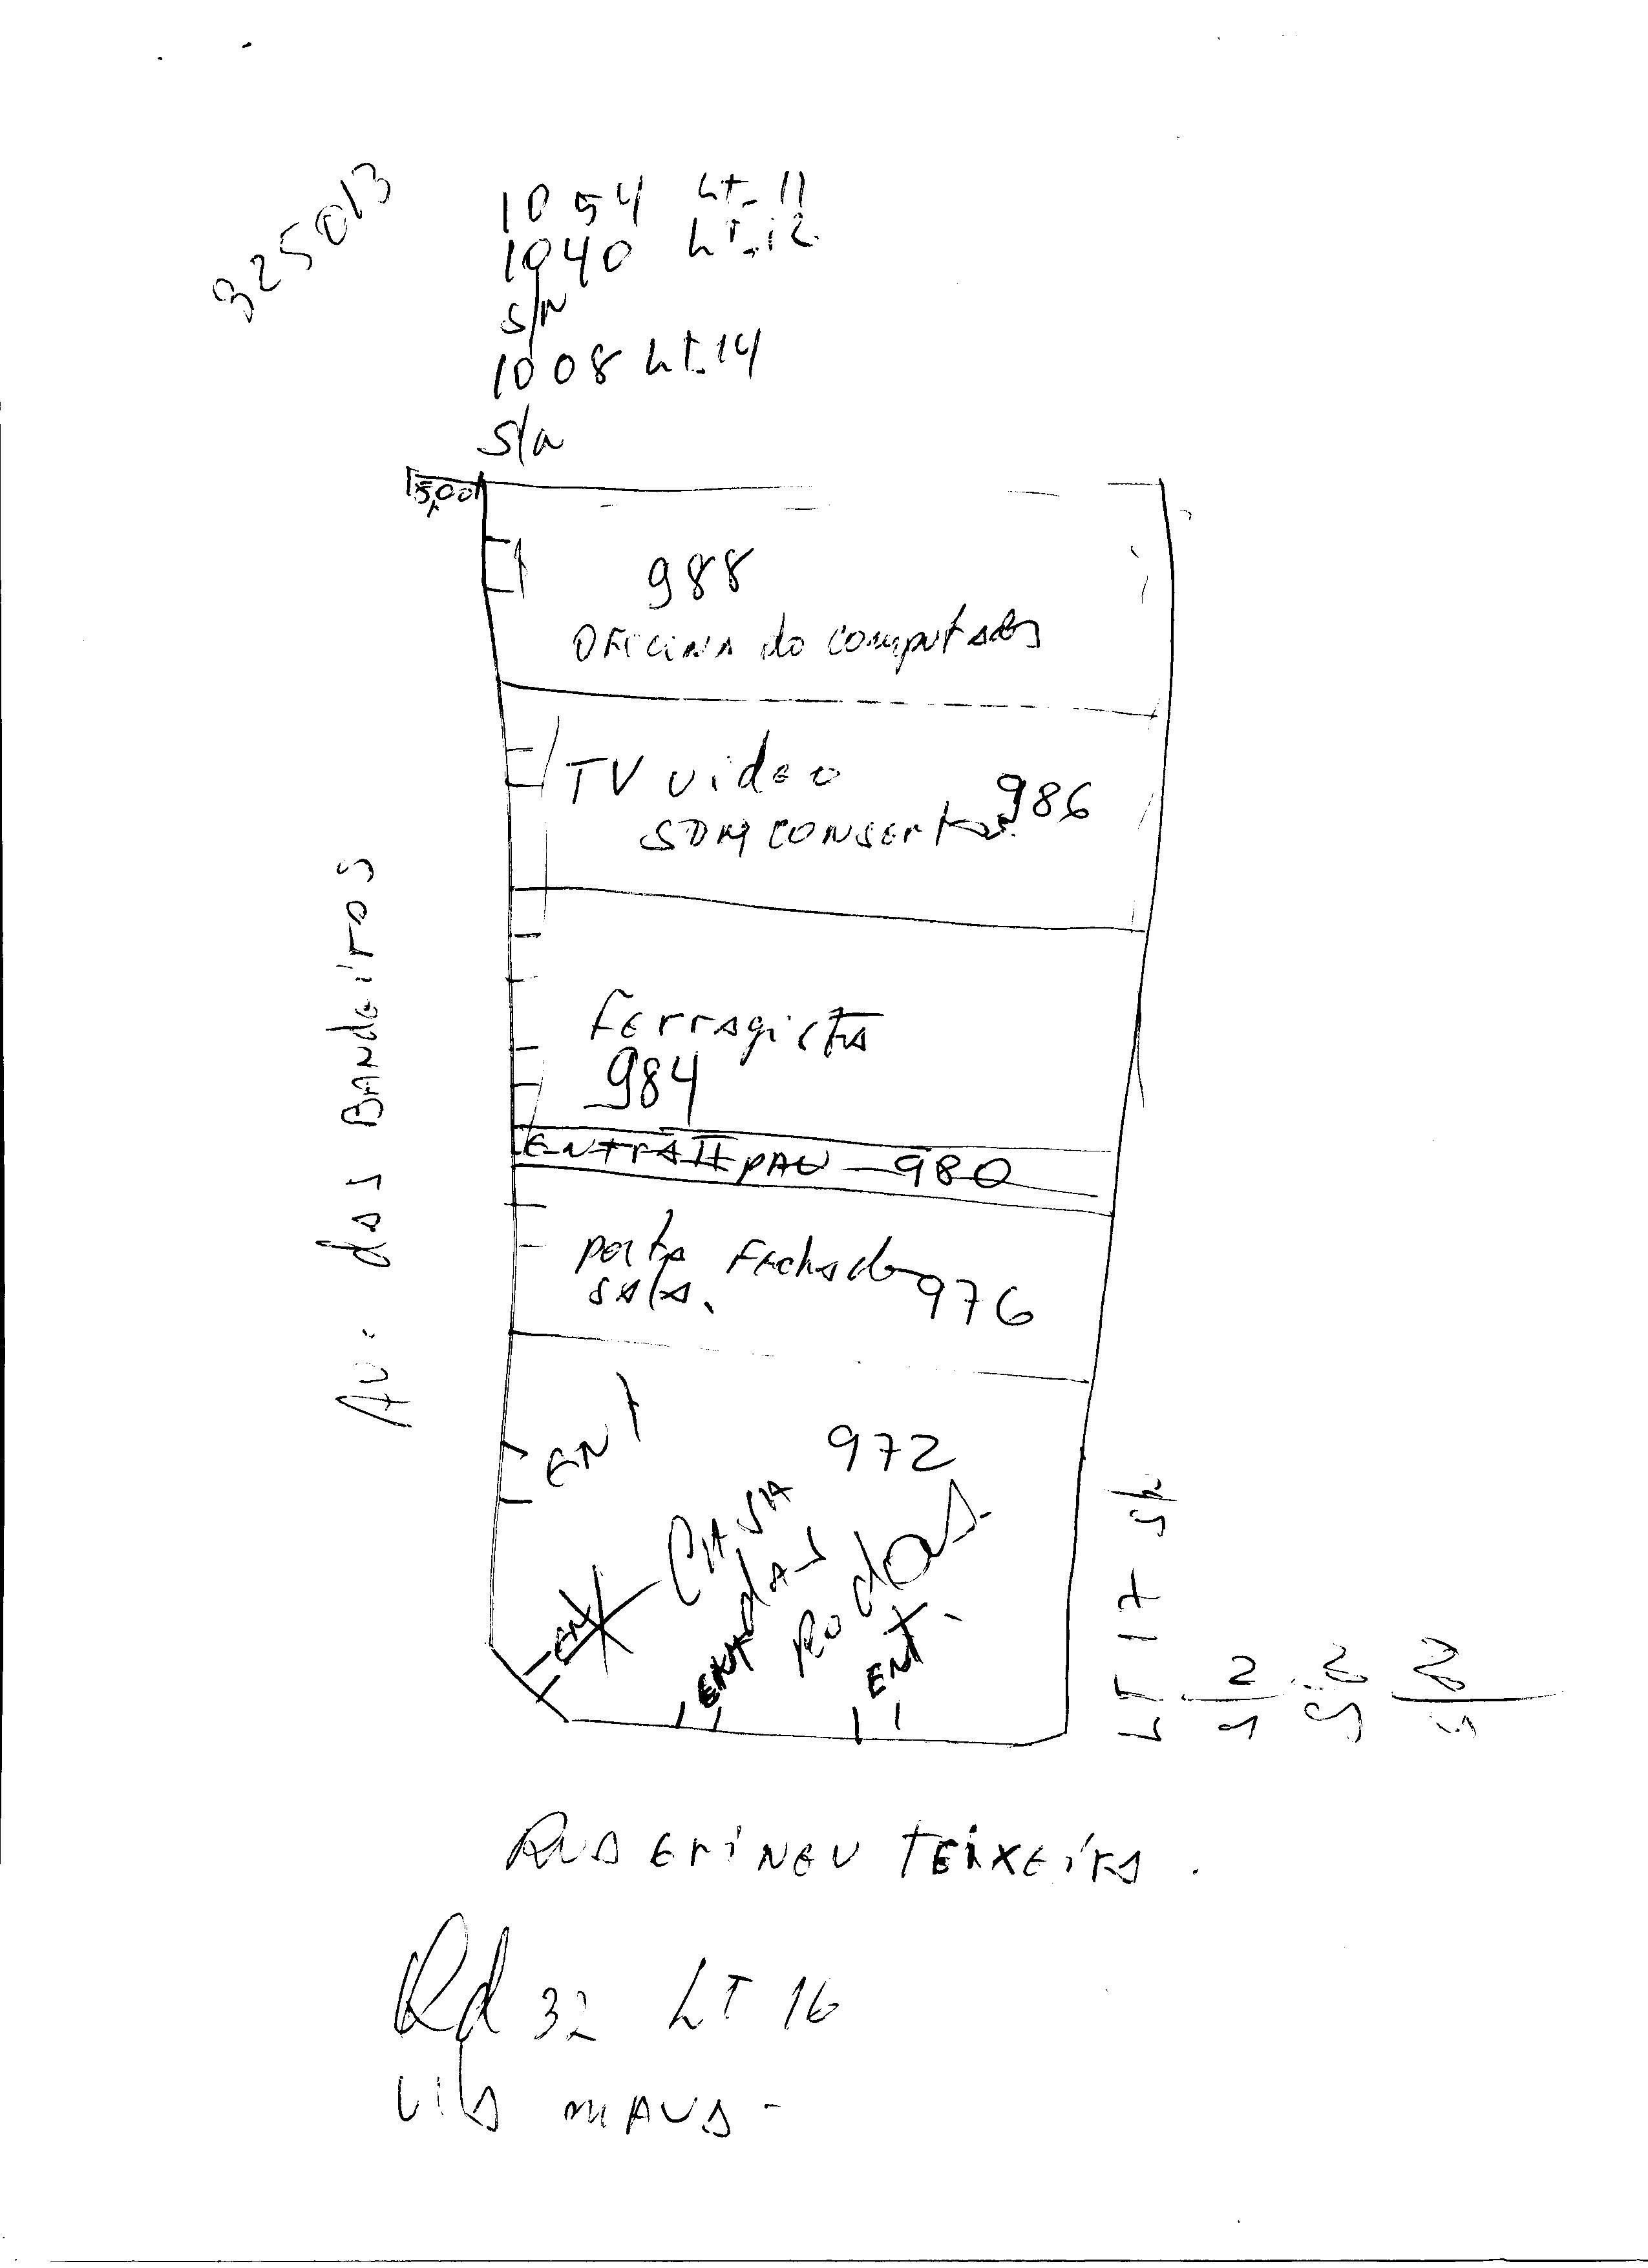 325013
1054 LT-11
1040 LT-12
S/N
1008 LT.14
S/N
15,00
988
OFICINA do computador
TV video
986
SOM CONSERTO
Ferragista
984
ENTRA II PAV - 980
porta Fechada
sala.
976
Av. das BANdeiras
ENT
972
CASA
das
Rodas
ENT
ENT
ENT.
LT 17 S/N
Rua Erineu TEIXEIRA.
Qd 32 LT 16
Vila MAUA -